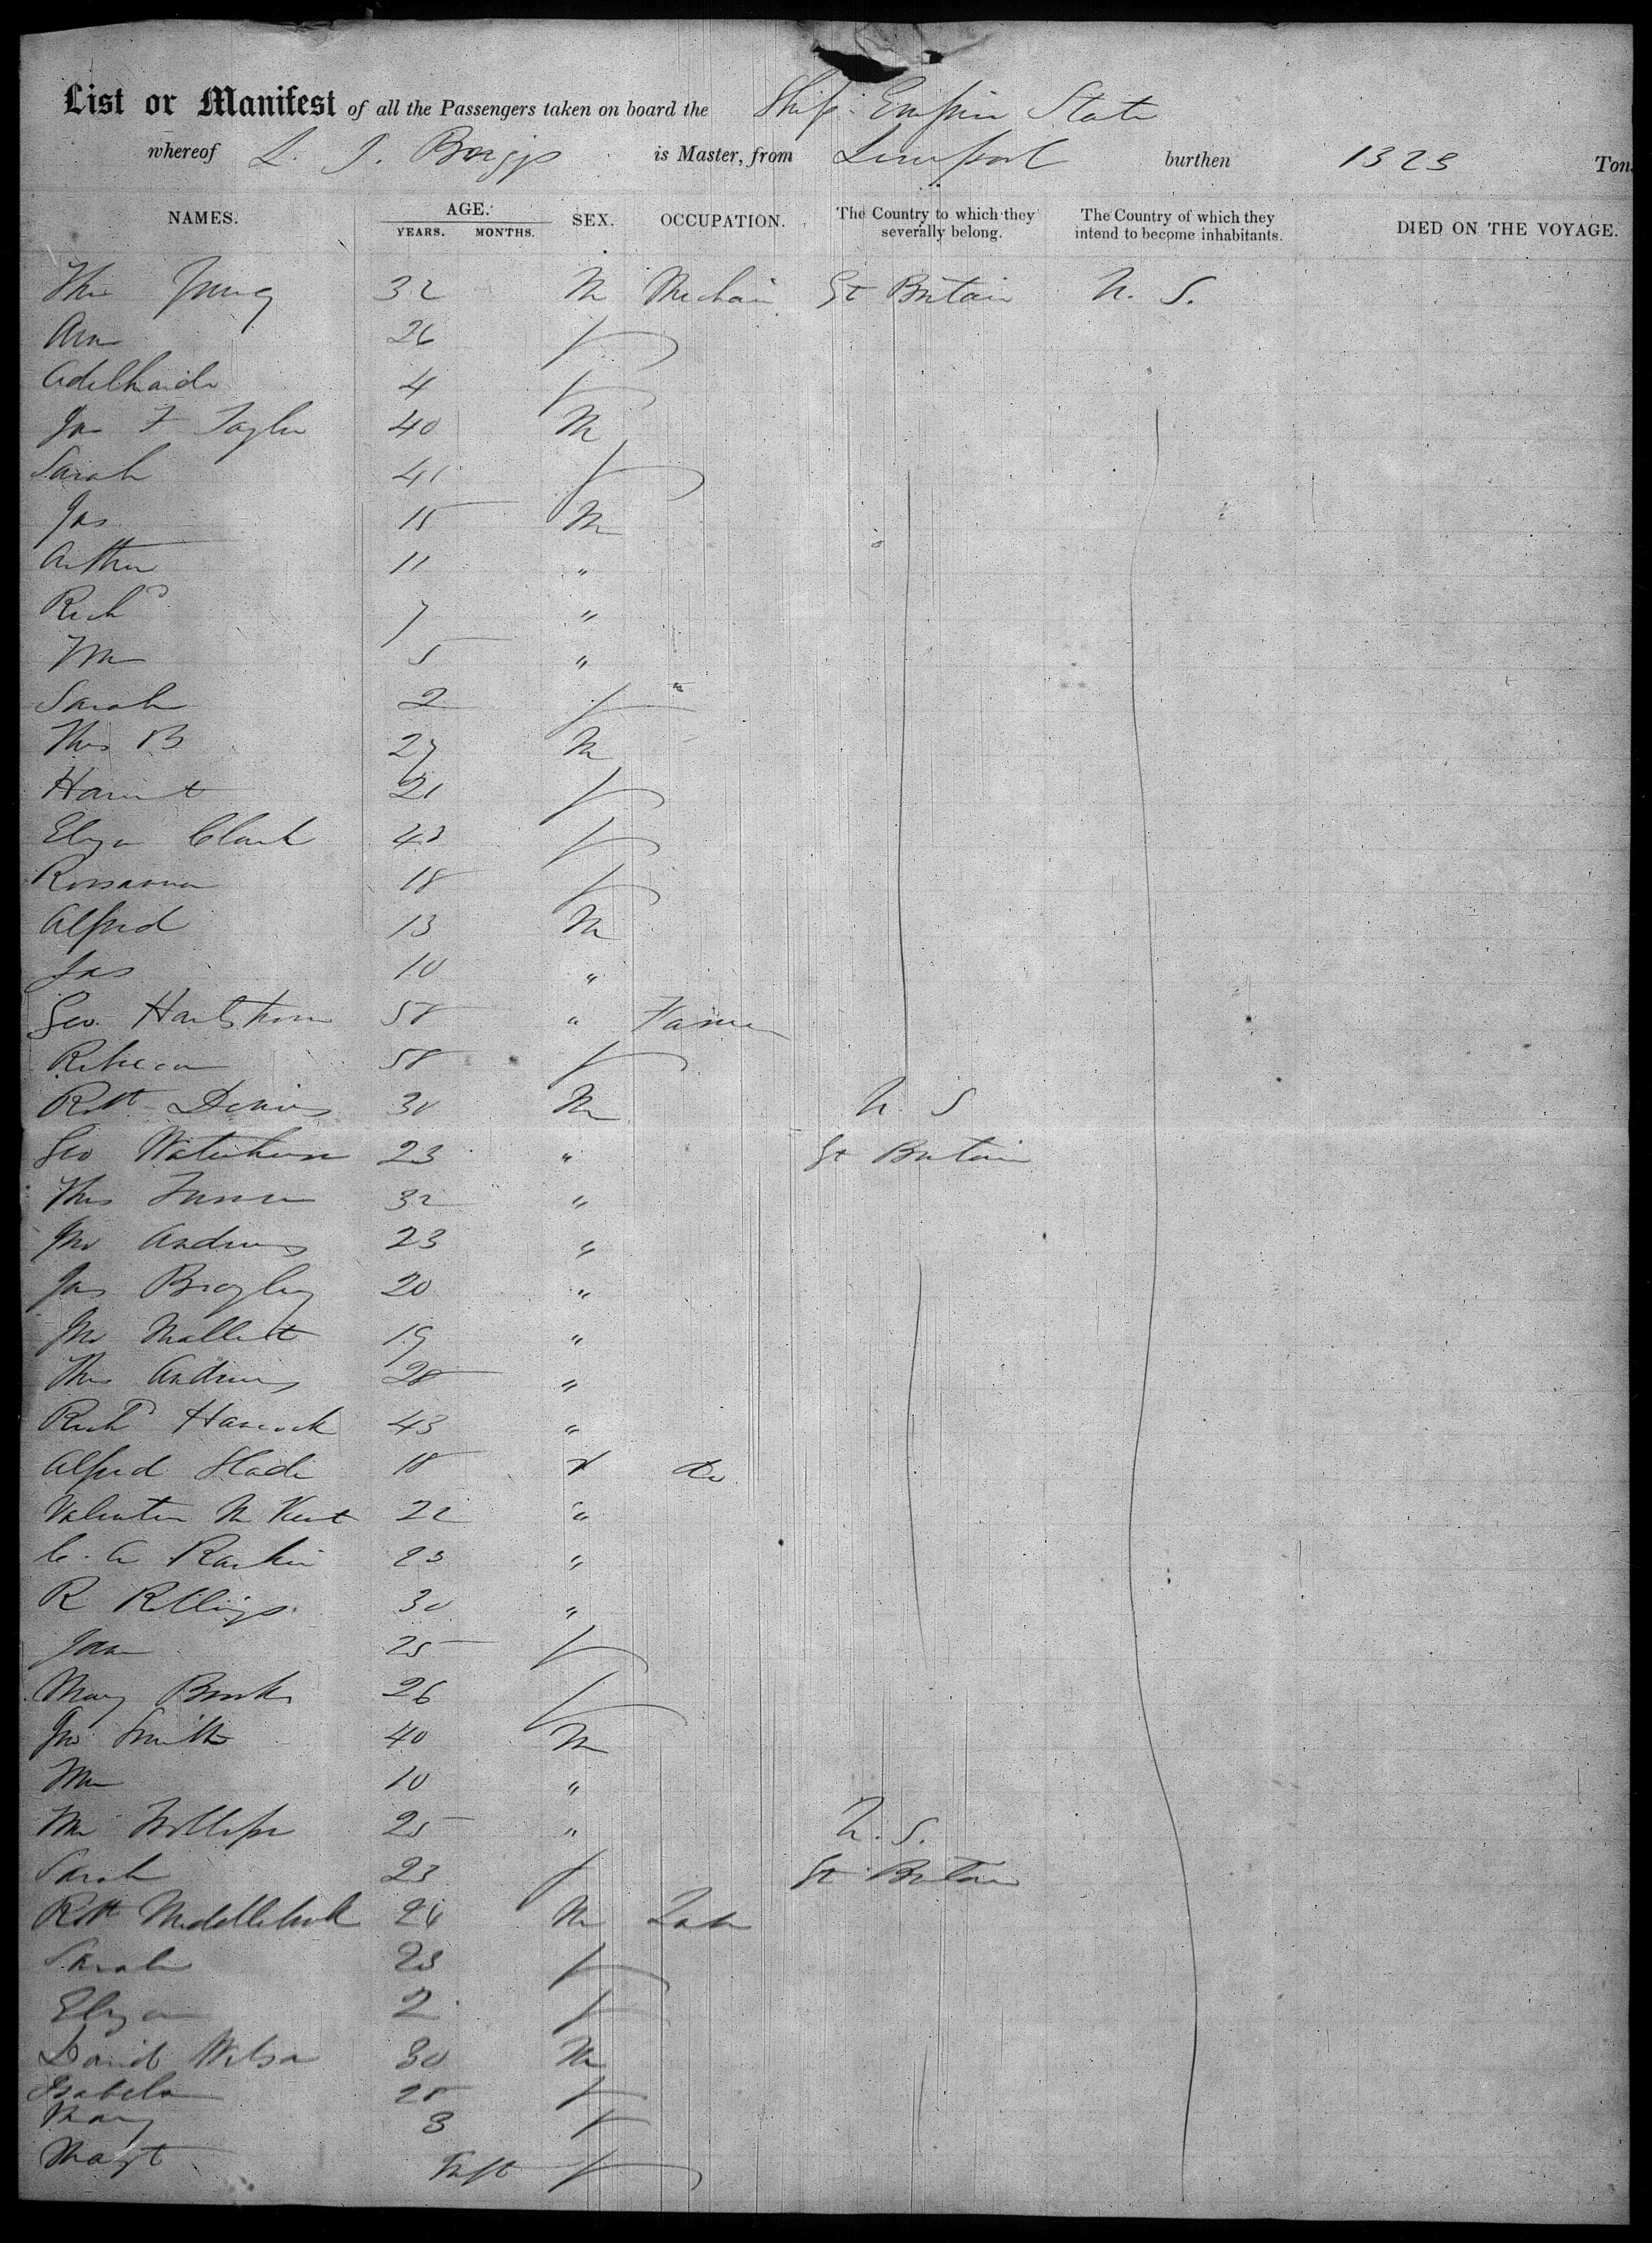 List or Manifest of all the Passengers taken on board the Ship Empire State
whereof L. J. Briggs is Master, from Liverpool burthen 1323 Tons
NAMES. AGE. YEARS. MONTHS. SEX. OCCUPATION. The Country to which they severally belong. The Country of which they intend to become inhabitants. DIED ON THE VOYAGE.
Young 32 M Gt Britain U. S.
Ann 26 F
Adelhaide 4 F
Jas F Taylor 40 M
Sarah 41 F
Jas 15 M
Arthur 11 "
Richd 7 "
Wm 5 "
Sarah 2 F
Thos B 27 M
Harriet 21 F
Eliza Clark 43 F
Rossanna 18 F
Alfred 13 M
Jas 10 "
Geo Hartshorn 58 " Farmer
Rebecca 58 F
Robt 30 M U S
Geo Waterhouse 23 " Gt Britain
Thos 32 "
Jno Andrews 23 "
Jas 20 "
Jno Mallett 19 "
Thos Andrews 28 "
Richd Hancock 43 "
Alfred Slade 18 " Do
Valentine M Kent 22 "
C. A Rankin 23 "
R Rollings 30 "
Jane 25 F
Mary Brooks 26 F
Jno Smith 40 M
Wm 10 "
Wm 25 " U. S.
Sarah 23 F Gt Britain
Robt Middlebrook 26 M Lab
Sarah 23 F
Eliza 2 F
David Wilson 30 M
Isabela 25 F
Mary 3 F
Margt Inft F